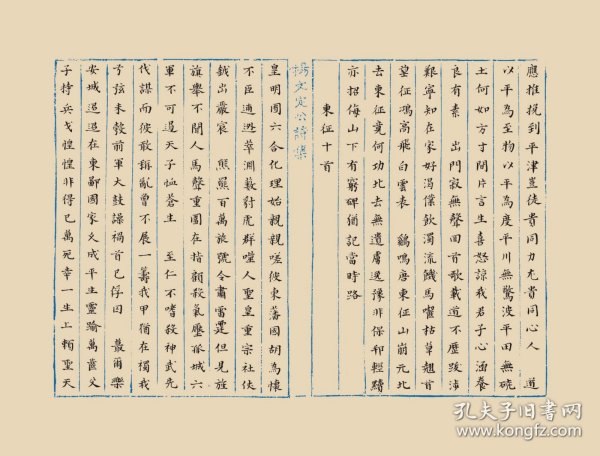 應推挽到平津豈徒貴同力尤貴同心人　道
以平為至物以平為度平川無驚波平田無磽
土何如方寸間片言生喜怒諒我君子心涵養
良有素　出門寂無聲回首歌載道不歷跋涉
艱寧知在家好渴僕飲濁流饑馬嚙枯草翹首
望征鴻高飛白雲表　鷄鳴唐東征山崩元北
去東征竟何功北去無遺虜逸豫非保邦輕黷
亦招侮山下有窮碑猶記當時路
東征十首
楊文定公詩集
皇明圖六合化理始親親嗟彼東藩國胡為懷
不臣逋逃萃淵藪豺虎群噬人聖皇重宗社伏
鉞出嚴宸　熊羆百萬旅號令肅雷霆但見旌
旗舉不聞人馬聲重圍在指顧殺氣壓孤城六
軍不可遏天子恤蒼生　至仁不嗜殺神武先
代謀而彼敢稱亂曾不展一籌我甲猶在櫜我
弓弦未彀前軍大鼓譟禍首已俘囚　蕞爾樂
安城迢迢在東鄙國家久成平生靈踰萬薑父
子持兵戈惶惶非得已萬死幸一生上賴聖天
孔夫子旧书网
www.kongfz.com